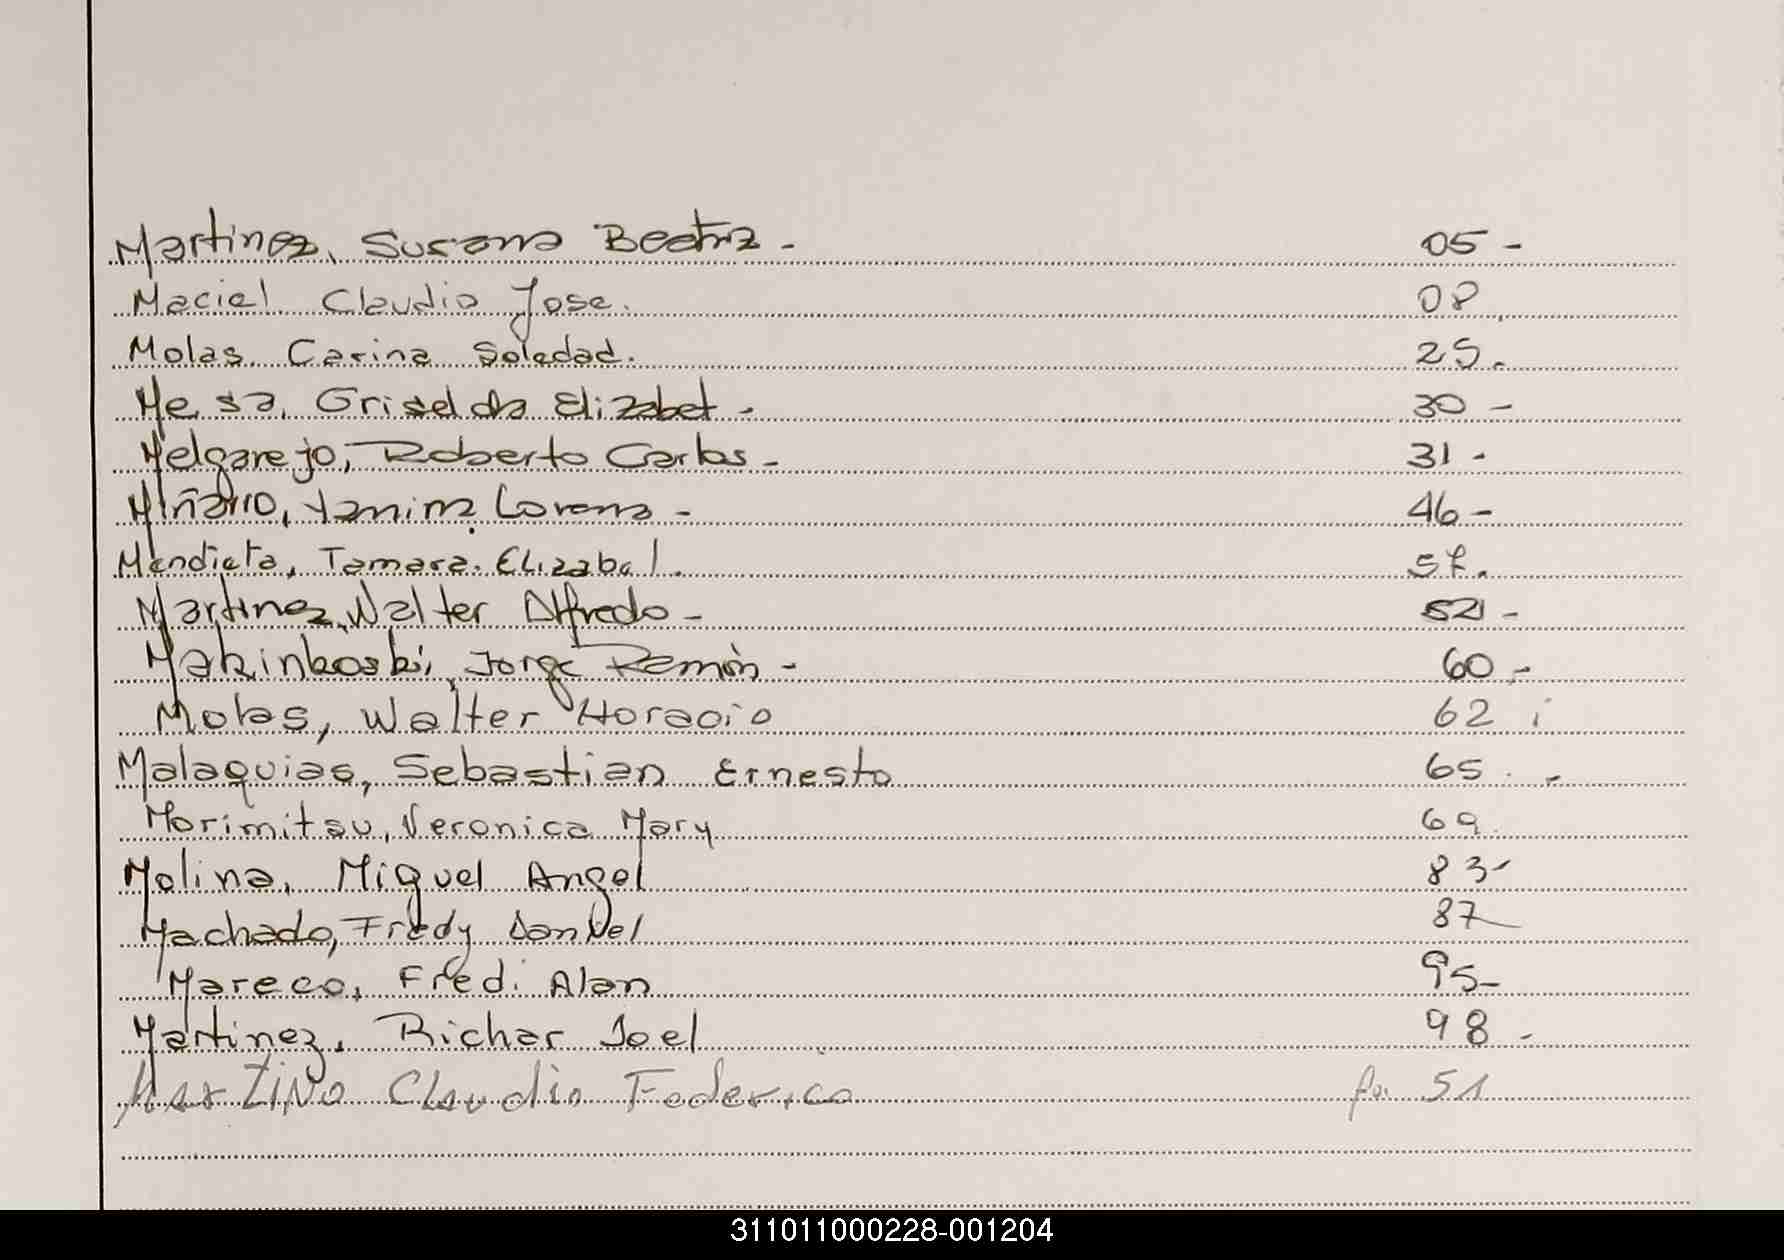 Martinez, Susana Beatriz - 05 -
Maciel Claudio Jose. 08
Molas Carina Soledad. 25.
Mesa, Griselda Elizabet - 30 -
Melgarejo, Roberto Carlos - 31 -
Miñarro, Yanina Lorena - 46 -
Mendieta, Tamara Elizabel. 57.
Martinez, Walter Alfredo - 52 -
Makinkoski, Jorge Ramón - 60 -
Molas, Walter Horacio 62
Malaquias, Sebastian Ernesto 65 -
Morimitsu, Veronica Mary 69
Molina, Miguel Angel 83-
Machado, Fredy Daniel 87
Mareco, Fredi Alan 95-
Martinez, Richar Joel 98 -
MartiNo Claudio Federico fo. 51
311011000228-001204